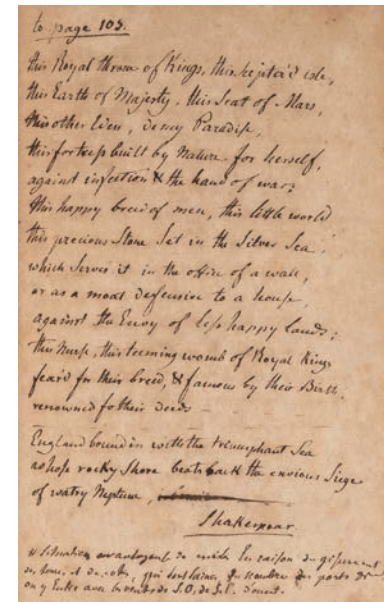 to page 103.
this Royal throne of Kings, this scepter'd isle,
this Earth of Majesty, this Seat of Mars,
this other Eden, demy Paradise,
this fortress built by Nature for herself,
against infection & the hand of war;
this happy breed of men, this little world
this precious Stone Set in the Silver Sea
which Serves it in the office of a wall,
or as a moat defensive to a house,
against the Envoy of less happy lands;
this Nurse, this teeming womb of Royal Kings
fear'd for their breed, & famous by their Birth
renowned for their deeds
England bound in with the triumphant Sea
whose rocky Shore beats back the envious Siege
of watry Neptune,
Shakespear
Situation de en raison du gisement
et de du nombre de ports
on y Entre avec de S.O. de S.E.